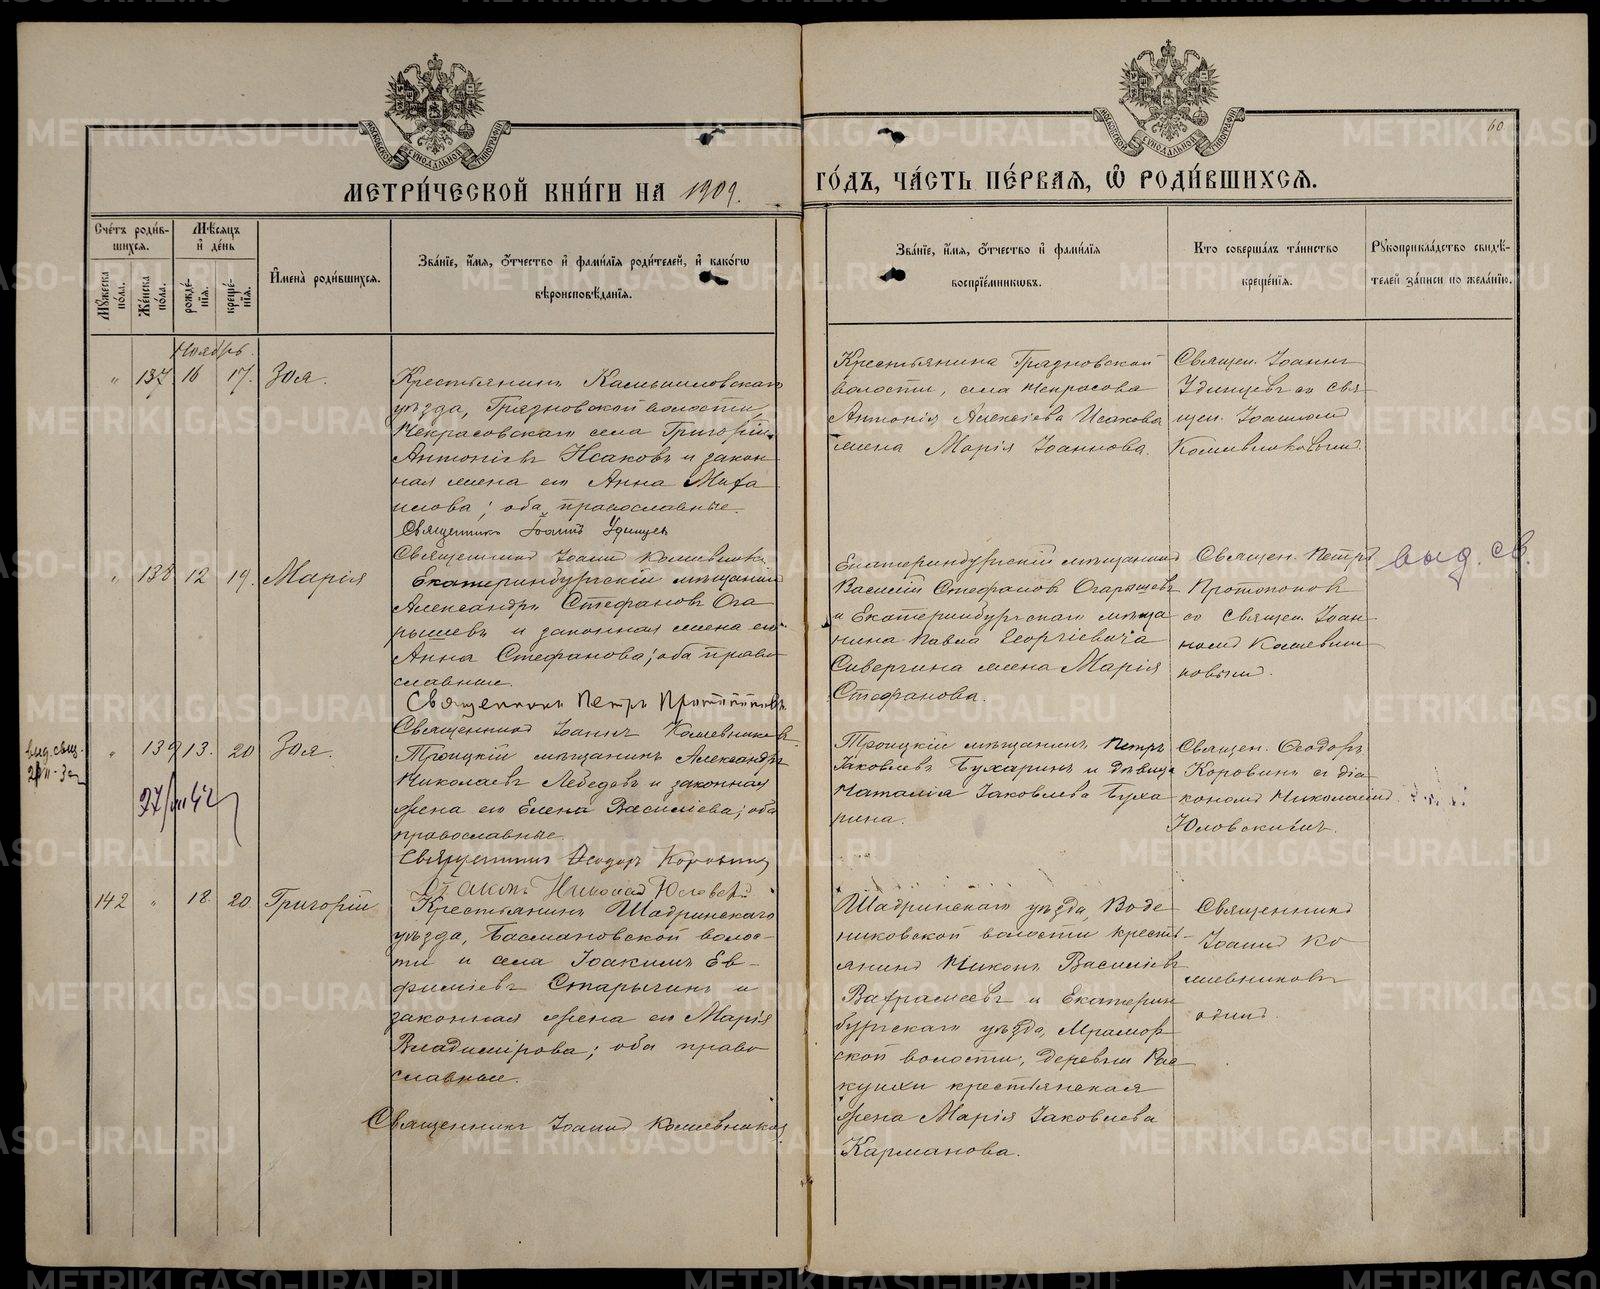 60
МЕТРИ́ЧЕСКОЙ КНИ́ГИ НА 1909.
ГО́ДЪ, ЧА́СТЬ ПЕ́РВАЯ, Ѡ РОДИ́ВШИХСЯ.
Сче́тъ роди́вшихся.
Му́жеска по́ла.
Же́нска по́ла.
Мѣ́сяцъ и де́нь
рожде́нїя.
креще́нїя.
И́мена̀ роди́вшихся.
Зва́нїе, и́мя, о́тчество и фами́лїя роди́телей, и како́гѡ
вѣроисповѣ́данїя.
Зва́нїе, и́мя, о́тчество и фами́лїя
воспрїе́мниковъ.
Кто̀ соверша́лъ та́инство
креще́нїя.
Рꙋкоприкла́дство свидѣ́-
телей за́писи по жела́нїю.
Ноябрь.
" 137 16 17. Зоя.
Крестьянинъ Камышловскаго
уѣзда, Грязновской волости,
Некрасовскаго села Григорій
Антоніевъ Исаковъ и закон
ная жена его Анна Миха
илова; оба православные.
Священникъ Іоаннъ Удинцев
Священникъ Іоаннъ Кожевников
Крестьянина Грязновской
волости, села Некрасова
Антонія Алексіева Исакова
жена Марія Іоаннова.
Священ. Іоаннъ
Удинцевъ со свя
щен. Іоанномъ
Кожевниковымъ.
" 138 12 19. Марія
Екатеринбургскій мѣщанинъ
Александръ Стефановъ Ога
рышевъ и законная жена его
Анна Стефанова; оба право
славные.
Священникъ Петръ Протопоповъ.
Священникъ Іоаннъ Кожевниковъ.
Екатеринбургскій мѣщанинъ
Василій Стефановъ Огарышевъ
и Екатеринбургскаго мѣща
нина Павла Георгіевича
Сивергина жена Марія
Стефанова.
Священ. Петръ
Протопоповъ
со Священ. Іоан
номъ Кожевни
ковымъ.
выд. св.
выд. свид.
" 139 13. 20 Зоя.
27/VIII 42
Троицкій мѣщанинъ Александръ
Николаевъ Лебедевъ и законная
жена его Елена Василіева; оба
православные.
Священникъ Ѳеодоръ Коровинъ
Діаконъ Николай Юловскій
Троицкій мѣщанинъ Петръ
Іаковлевъ Бухаринъ и дѣвица
Наталія Іаковлева Буха
рина.
Священ. Ѳеодоръ
Коровинъ съ діа
кономъ Николаемъ
Юловскимъ.
142 " 18. 20 Григорій
Крестьянинъ Шадринскаго
уѣзда, Басмановской волос-
ти и села Іоакимъ Ев-
фиміевъ Старыгинъ и
законная жена его Марія
Владимірова; оба право
славные.
Священникъ Іоаннъ Кожевниковъ
Шадринскаго уѣзда, Воде
никовской волости кресть-
янинъ Никонъ Василіевъ
Вахрамеевъ и Екатерин
бургскаго уѣзда, Мрамор
ской волости, деревни Рас
кунхи крестьянская
жена Марія Іаковлева
Карманова.
Священникъ
Іоаннъ Ко
жевниковъ
одинъ.